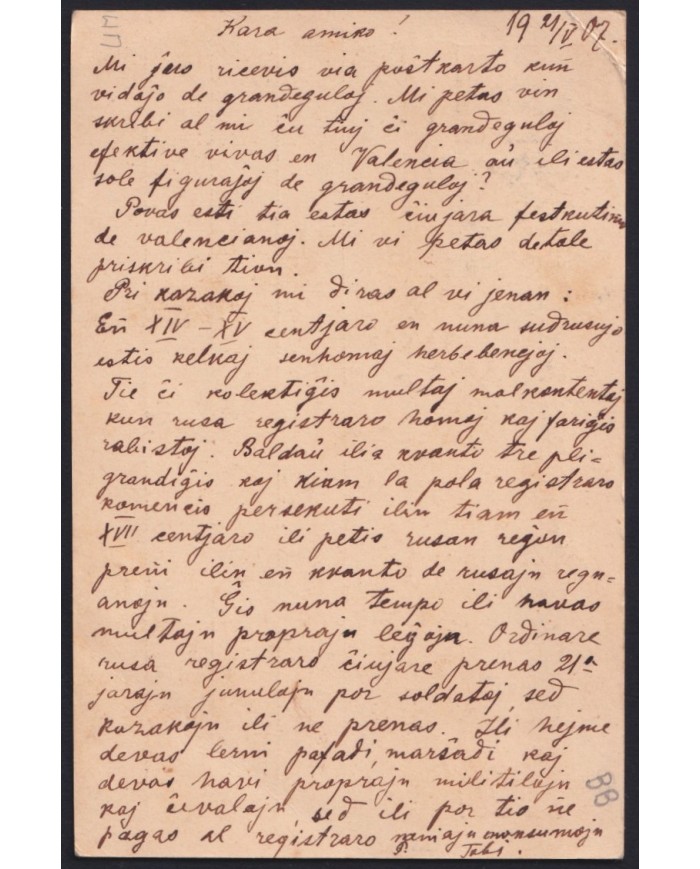 Kara amiko!
19 21/V 07.
Mi ĵeo ricevis via poŝtkarto kun̄
vidaĵo de grandeguloj. Mi petas vin
skribi al mi ĉu tiuj ĉi grandeguloj
efektive vivas en Valencia aŭ ili estas
sole figuraĵoj de grandeguloj?
Povas esti tia estas ĉiujara festkutimo
de valencianoj. Mi vi petas detale
priskribi tion.
Pri kazakoj mi diras al vi jenan:
En̄ XIV–XV centjaro en nuna sudrusujo
estis kelkaj senhomaj herbebenejoj.
Tie ĉi kolektiĝis multaj malkontentaj
kun rusa registraro homoj kaj fariĝis
rabistoj. Baldaŭ ilia kvanto tre pli-
grandiĝis kaj kiam la pola registraro
komencis persekuti ilin tiam en̄
XVII centjaro ili petis rusan reĝon
pren̄i ilin en̄ kvanto de rusajn regn-
anojn. Ĝis nuna tempo ili havas
multajn proprajn leĝojn. Ordinare
rusa registraro ĉiujare prenas 21ⁿ
jarajn junulojn por soldatoj, sed
kazakojn ili ne prenas. Ili hejme
devas lerni pafadi, marŝadi kaj
devas havi proprajn militilojn
kaj ĉevalojn, sed ili por tio n̄e
pagas al registraro monsumojn
88